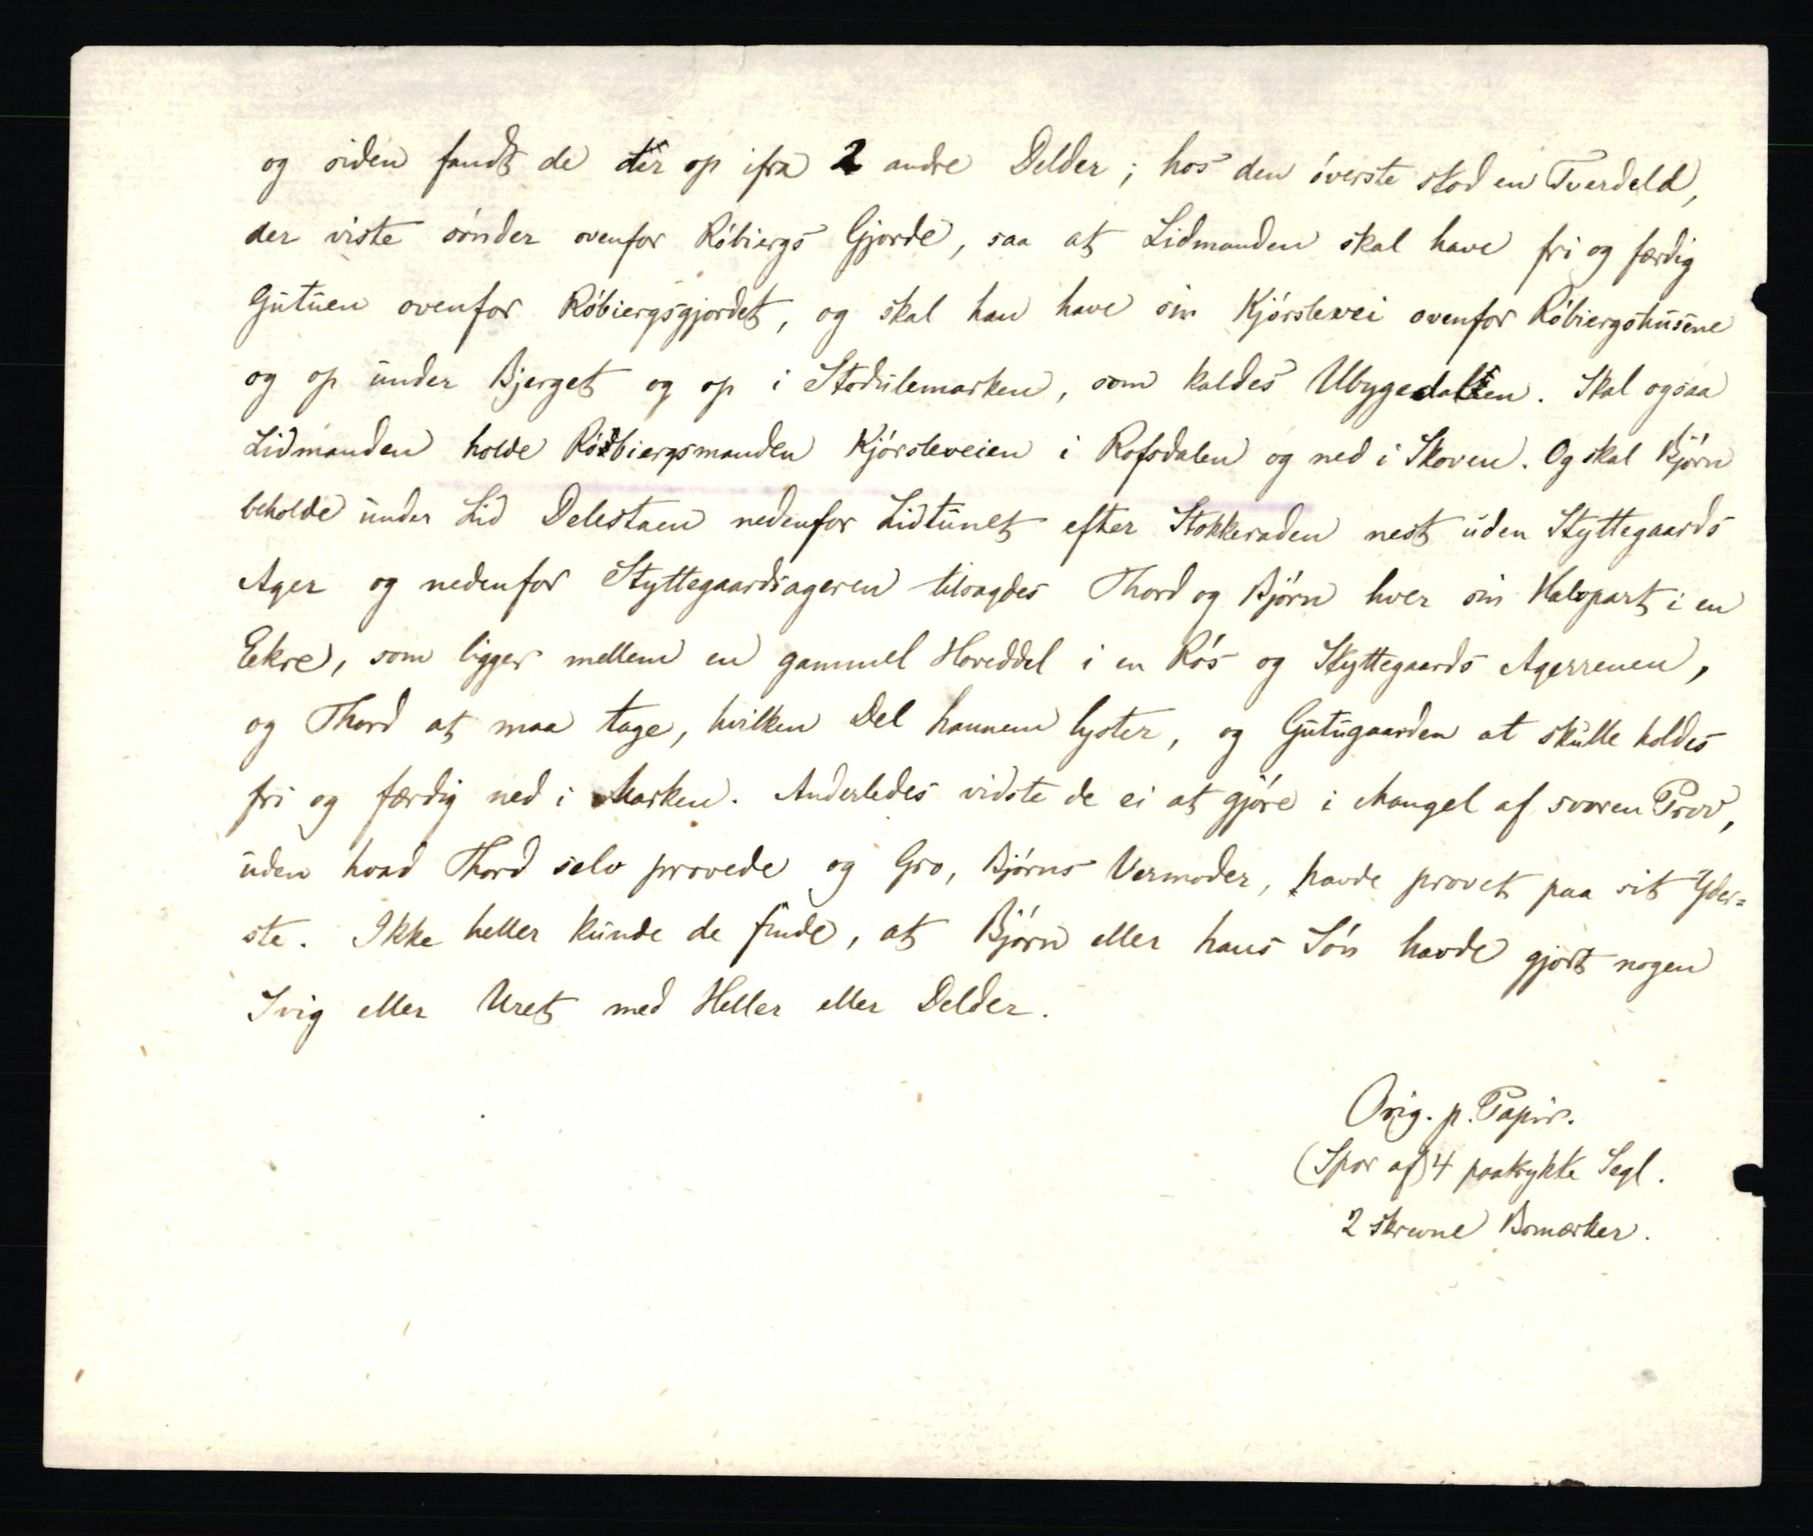 og siden fandt de der op ifra 2 andre Delder; hos den óverste stod en Tverdeld,
der viste sónder ovenfor Róbiergs Gjorde, saa at Lidmanden skal have fri og færdig
Gutuen ovenfor Róbiergsgjordet, og skal han have sin Kjórslevei ovenfor Róbiergshusene
og op under Bjerget og op i Stodulemarken, som kaldes Ubygedalen. Skal ogsaa
Lidmanden holde Ródbiergsmanden Kjórsleveien i Rofsdalen og ned i Skoven. Og skal Bjórn
beholde under Lid Delestaen nedenfor Lidtunet efter Stokkeraden nest uden Styttegaards
Ager og nedenfor Styttegaardsageren tilsagdes Thord og Bjórn hver sin Halvpart i en
Eekre, som ligger mellem en gammel Hoveddel i en Rós og Styttegaards Agerrenen,
og Thord at maa tage, hvilken Del hannem lyster, og Gutugaarden at skulle holdes
fri og færdig ned i Marken. Anderledes vidste de ei at gjóre i Mangel af svoren Prov,
uden hvad Thord selv provede og Gro, Bjórns Vermoder, havde provet paa sit Yder=
ste. Ikke heller kunde de finde, at Bjórn eller hans Són havde gjort nogen
Svig eller Uret med Heller eller Delder.
Orig. p. Papir.
(Spor af) 4 paatrykte Segl.
2 skrevne Bomærker.